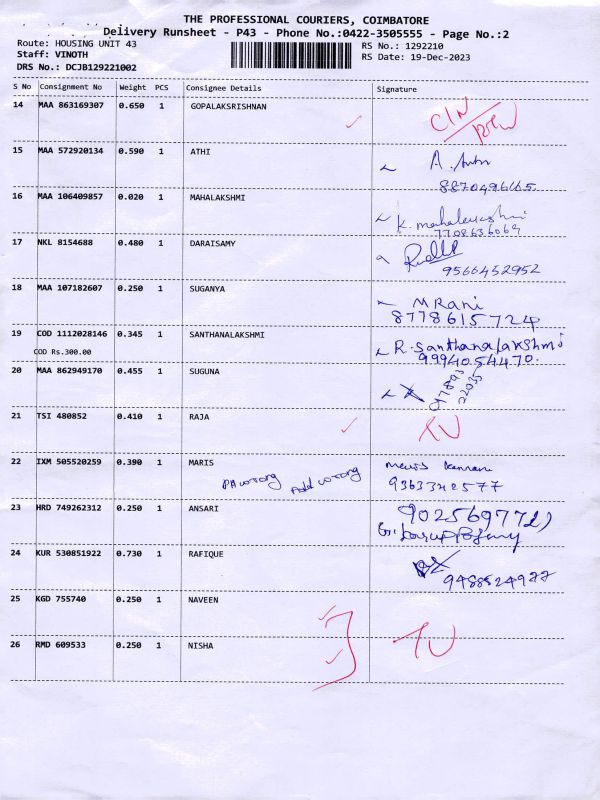 THE PROFESSIONAL COURIERS, COIMBATORE
Delivery Runsheet - P43 - Phone No.:0422-3505555 - Page No.:2
Route: HOUSING UNIT 43 RS No.: 1292210
Staff: VINOTH RS Date: 19-Dec-2023
DRS No.: DCJB129221002
S No Consignment No Weight PCS Consignee Details Signature
14 MAA 863169307 0.650 1 GOPALAKSRISHNAN
15 MAA 572920134 0.590 1 ATHI A.
8870496165
16 MAA 106409857 0.020 1 MAHALAKSHMI K. mahalakshmi
7708636069
17 NKL 8154688 0.480 1 DARAISAMY
9566452952
18 MAA 107182607 0.250 1 SUGANYA M Rani
8778615724
19 COD 1112028146 0.345 1 SANTHANALAKSHMI R. Santhanalakshmi
COD Rs.300.00 9994054470.
20 MAA 862949170 0.455 1 SUGUNA
97893
22035
21 TSI 480852 0.410 1 RAJA TU
22 IXM 505520259 0.390 1 MARIS
PH wrong Add wrong 9363342577
23 HRD 749262312 0.250 1 ANSARI
24 KUR 530851922 0.730 1 RAFIQUE
9488524977
25 KGD 755740 0.250 1 NAVEEN
26 RMD 609533 0.250 1 NISHA TU